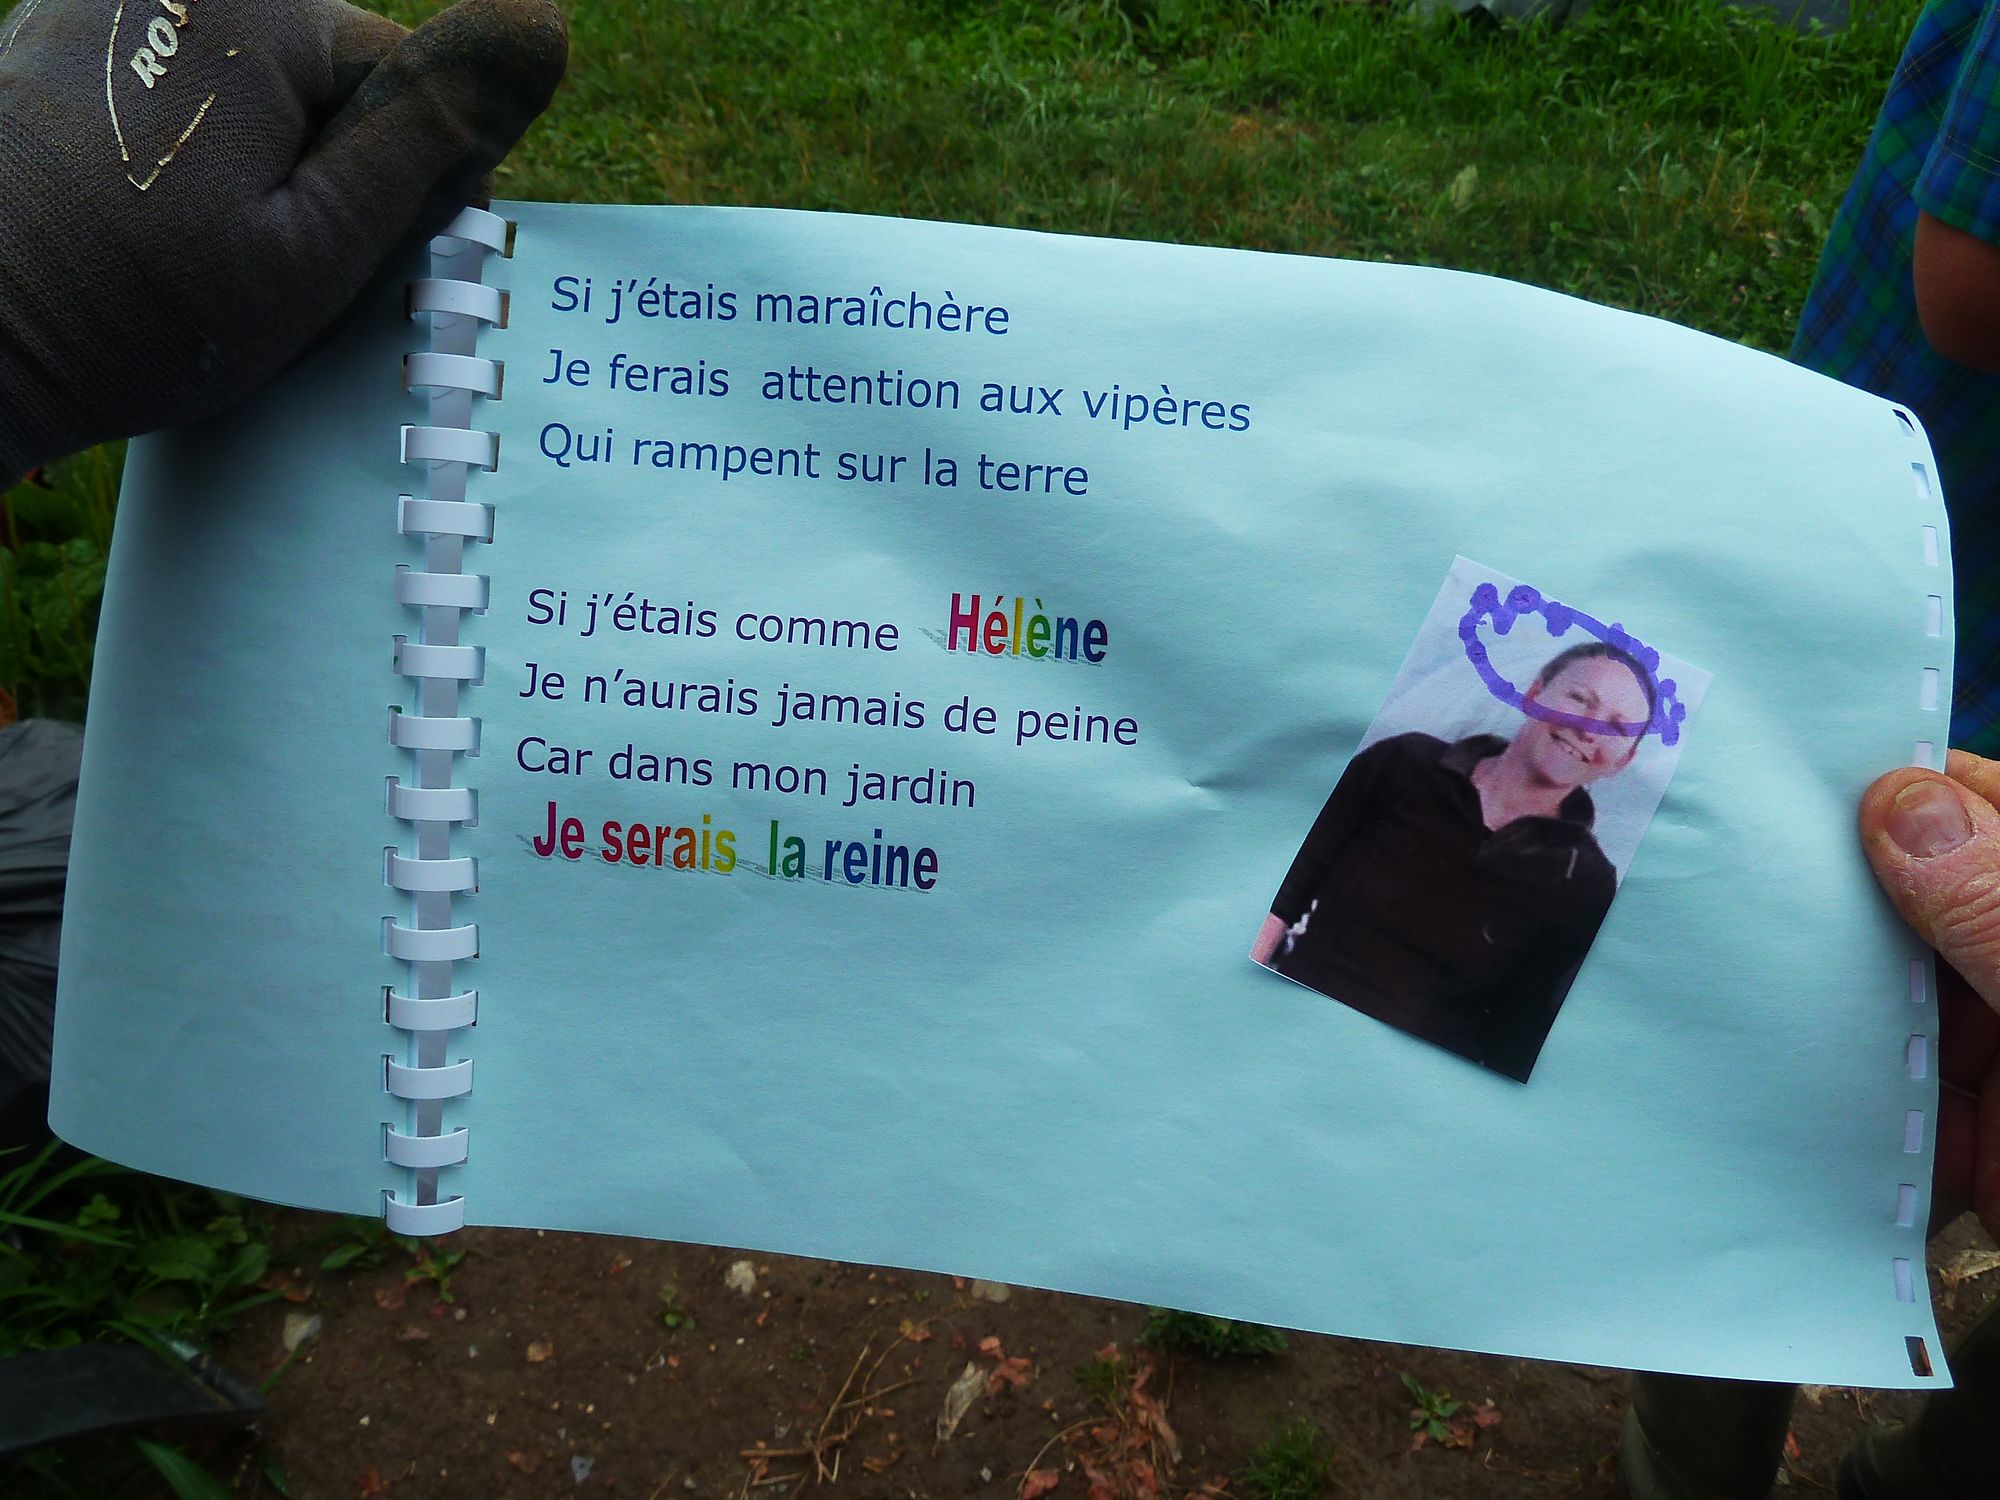 Si j'étais maraîchère
Je ferais attention aux vipères
Qui rampent sur la terre
Si j'étais comme Hélène
Je n'aurais jamais de peine
Car dans mon jardin
Je serais la reine